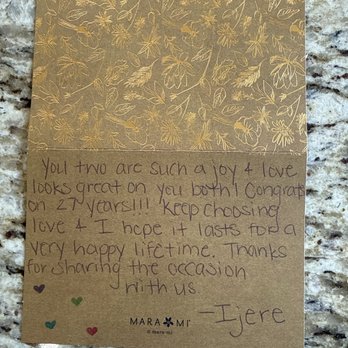 You two are such a joy & love
looks great on you both! Congrats
on 27 years!!! Keep choosing
love & I hope it lasts for a
very happy lifetime. Thanks
for sharing the occasion
with us.
-Ijere
MARA MI
© mara-mi